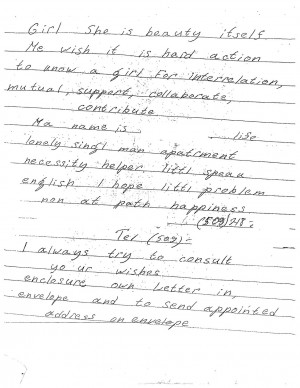 Girl She is beauty itself.
Me wish it is hard action
to know a girl for interrelation,
mutual, support, collaborate,
contribute
Ma name is life
lonely singl man apatcment
necessity helper, littl speau
english I hope littl problem
non at path happiness
(509) 218-
Tel (509)-
I always try to consult
yo ur wishes
enclosure own Letter in,
envelope and to send appointed
address on envelope